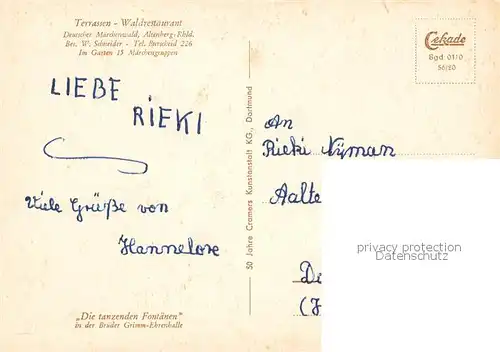 Terrassen - Waldrestaurant
Deutscher Märchenwald, Altenberg-Rhld.
Bes. W. Schneider - Tel. Burscheid 226
Im Garten 15 Märchengruppen
LIEBE
RIEKI
Viele Grüße von
Hannelore
„Die tanzenden Fontänen"
in der Brüder Grimm-Ehrenhalle
50 Jahre Cramers Kunstanstalt KG., Dortmund
Cekade
Bgd 0110
56/80
An
Rieki Nijman
Aalte
De
privacy protection
Bild: onlinepc.ch